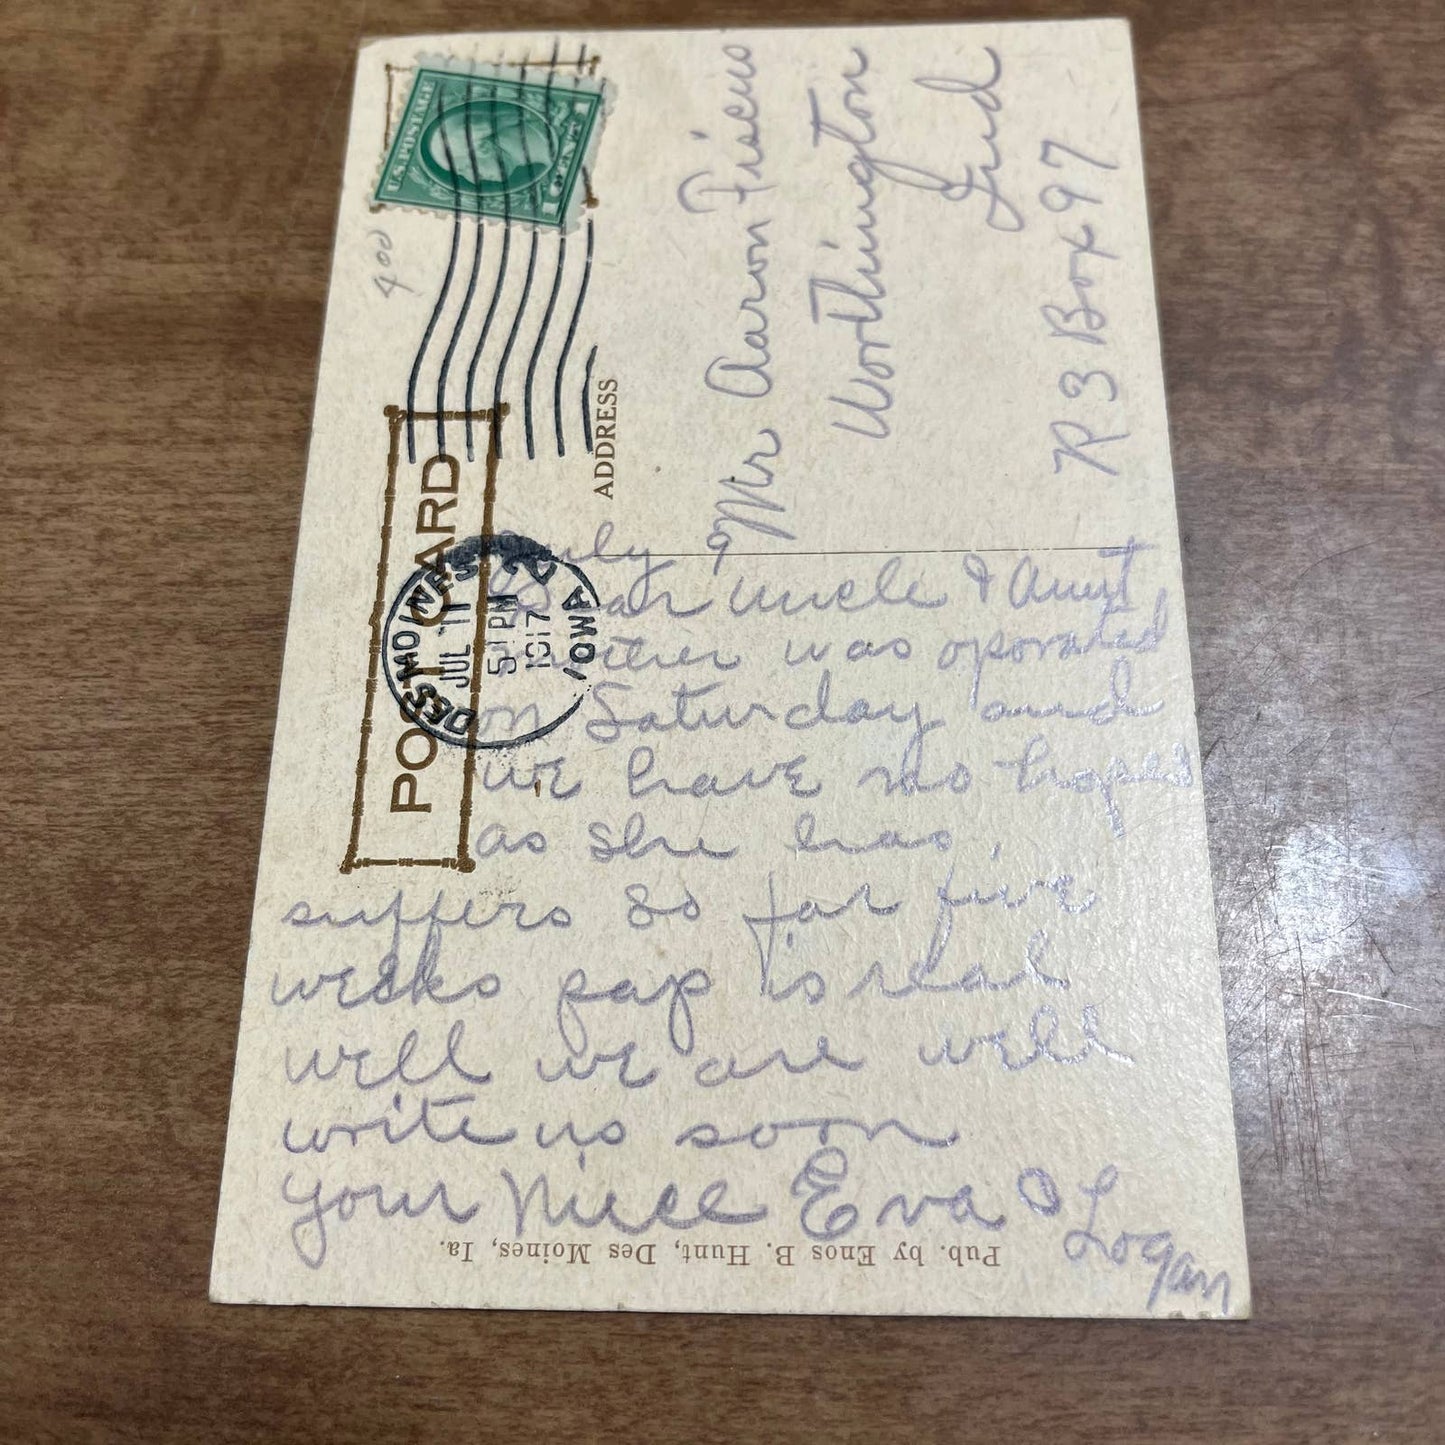 July 9
Dear Uncle & Aunt
mother was oporated
on Saturday and
we have no hopes
as she has,
suffers so far five
weeks pap is real
well we are well
write us soon
your Niece Eva O Logan
POST CARD
ADDRESS
U.S. POSTAGE
1 CENT 1
DES MOINES
JUL 11
5 - PM
1917
IOWA
400
Mr Aaron Friscus
Worthington
Ind
R 3 Box 97
Pub. by Enos B. Hunt, Des Moines, Ia.